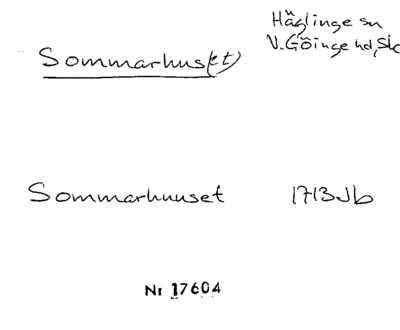 Häglinge sn
V. Göinge hd, Sk
Sommarhus(et)
Sommarhuuset 1713 Jb
Nr 17604